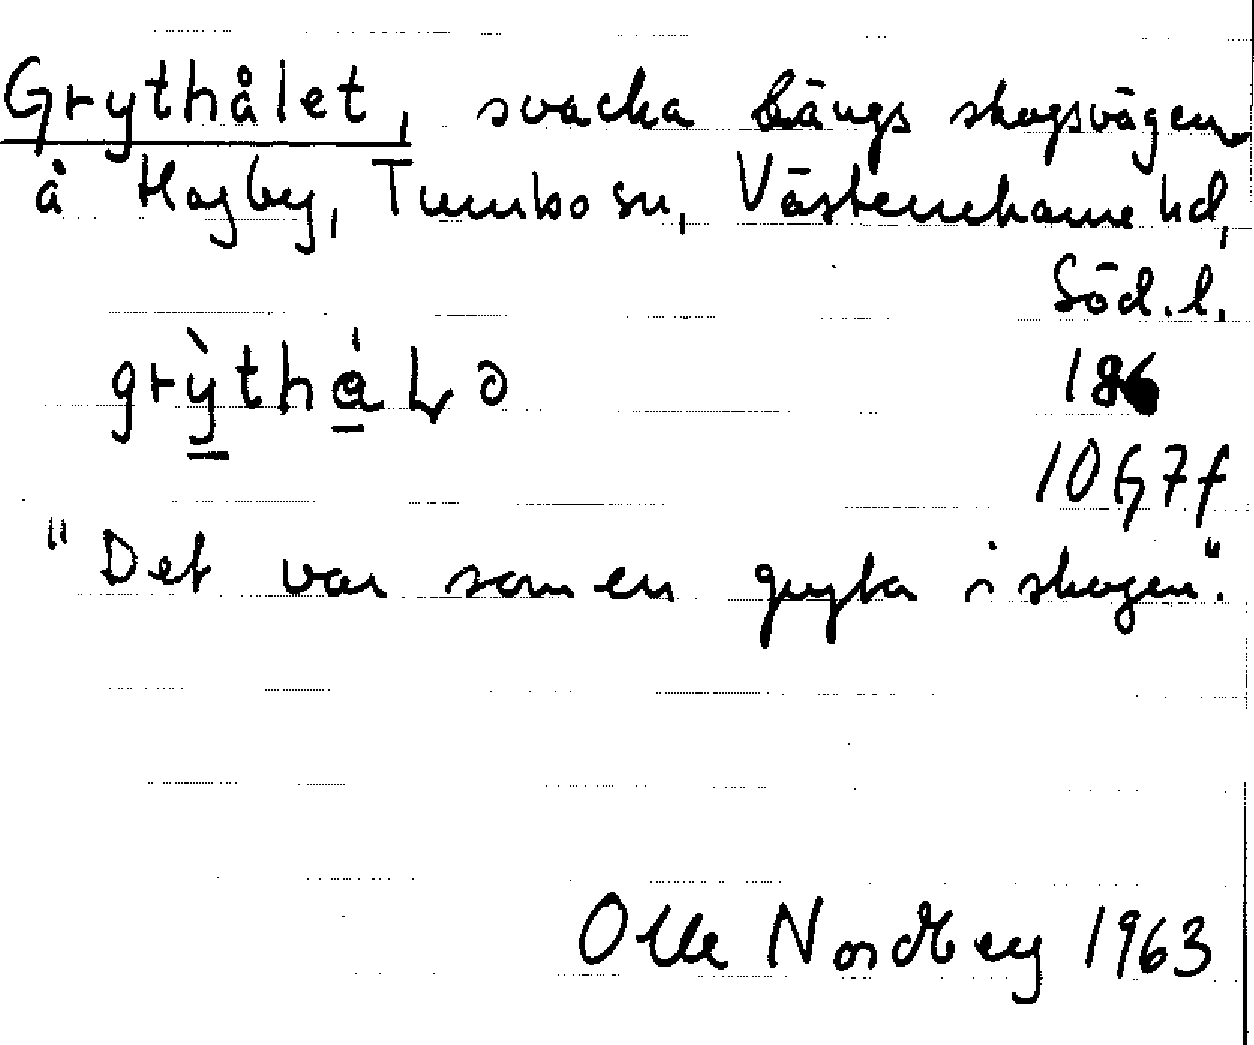 Grythålet, svacka längs skogsvägen
å Hagby, Tumbo sn, Västerrekarne hd,
Söd.l.
grỳthȧLə 186
10G7f
"Det var som en gryta i skogen".
Olle Nordberg 1963